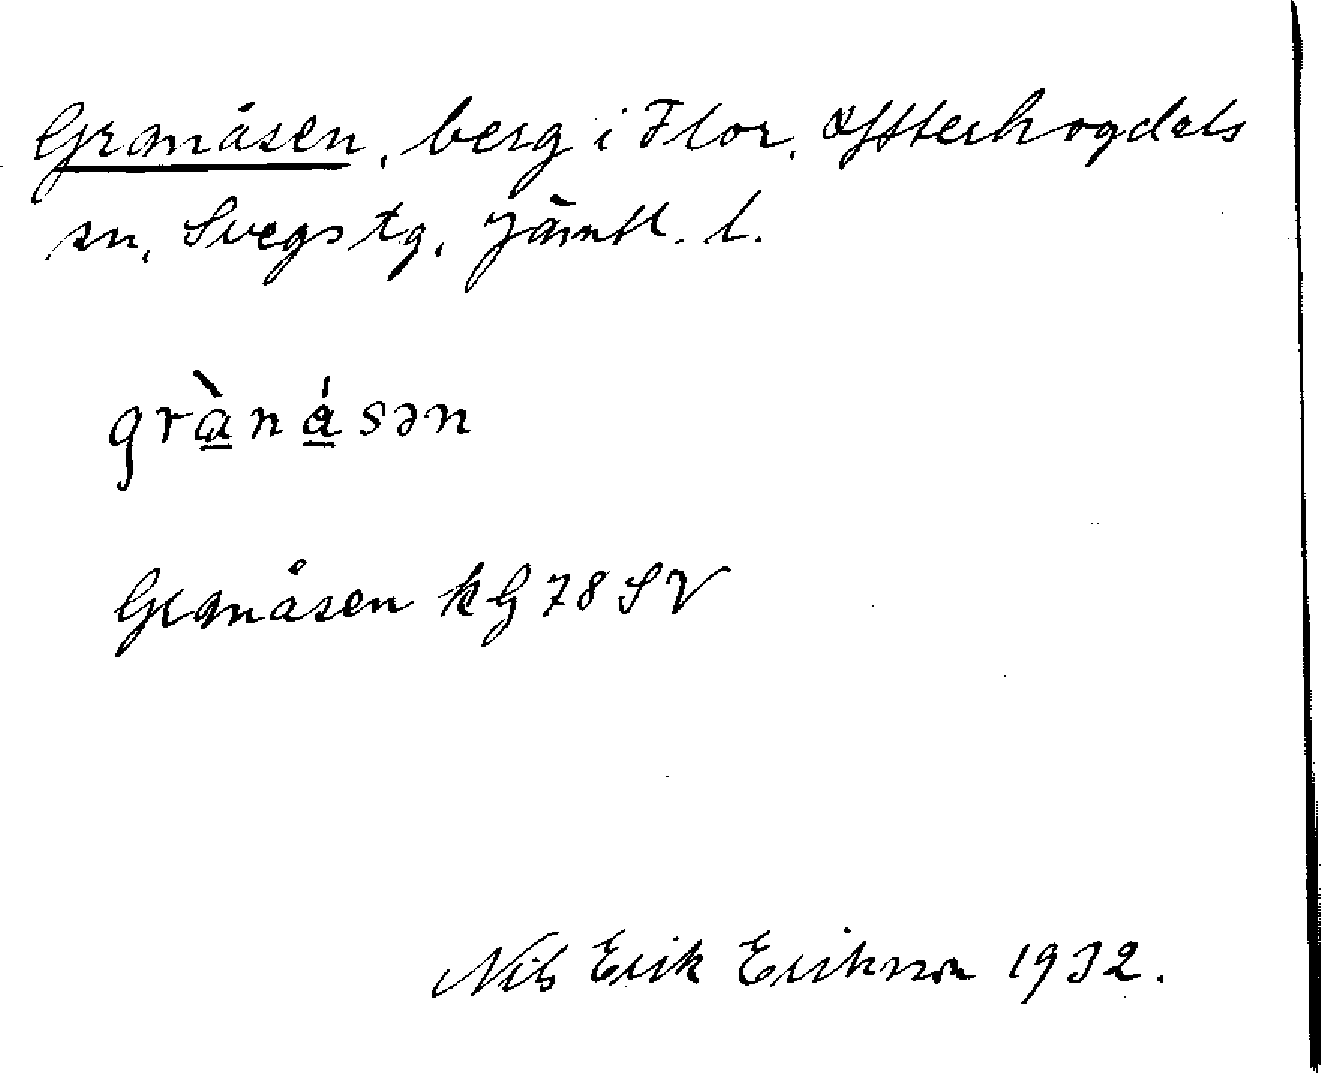 Granåsen, berg i Flor, Ytterhogdals
sn, Svegs tg, Jämtl. l.
grànásən
Granåsen kG 78 SV
Nils Erik Erikson 1932.